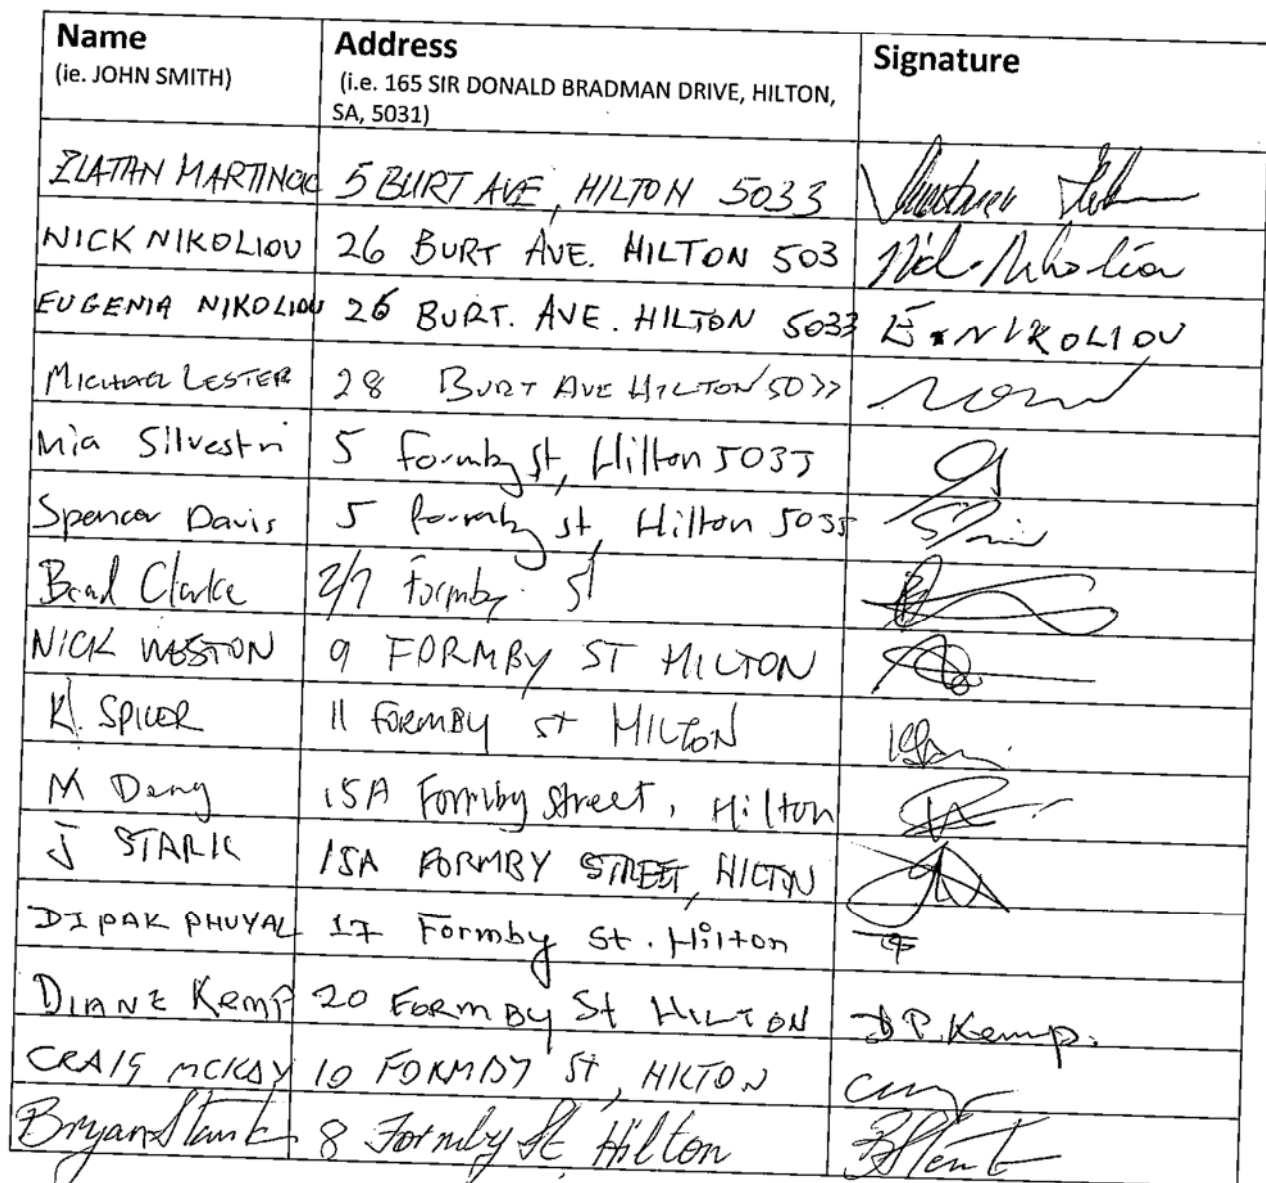 Name Address Signature
(ie. JOHN SMITH) (i.e. 165 SIR DONALD BRADMAN DRIVE, HILTON,
SA, 5031)
ZLATAN 5 BURT AVE, HILTON 5033
NICK NIKOLIOU 26 BURT AVE. HILTON 503 Nick Nikoliou
EUGENIA NIKOLIOU 26 BURT. AVE. HILTON 5033 E. NIKOLIOU
MICHAEL LESTER 28 BURT AVE HILTON 5033
Mia Silvestri 5 Formby st, Hilton 5033
Spencer Davis 5 Formby st, Hilton 5033
Brad Clarke 2/7 Formby St
NICK WESTON 9 FORMBY ST HILTON
K. SPICER 11 FORMBY ST HILTON
M Deng 15A Formby Street, Hilton
J STARK 15A FORMBY STREET, HILTON
DIPAK PHUYAL 17 Formby St. Hilton
DIANE Kemp 20 FORMBY St HILTON D P. Kemp.
CRAIG MCKAY 10 FORMBY ST, HILTON
Bryan 8 Formby St, Hilton